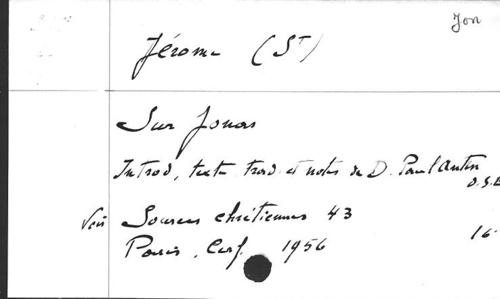 Jon
Jérome (St)
Sur Jonas
Introd, texte trad. et notes de D. Paul Antin
O.S.B
Voir Sources chrétiennes 43
Paris, Cerf. 1956 16-